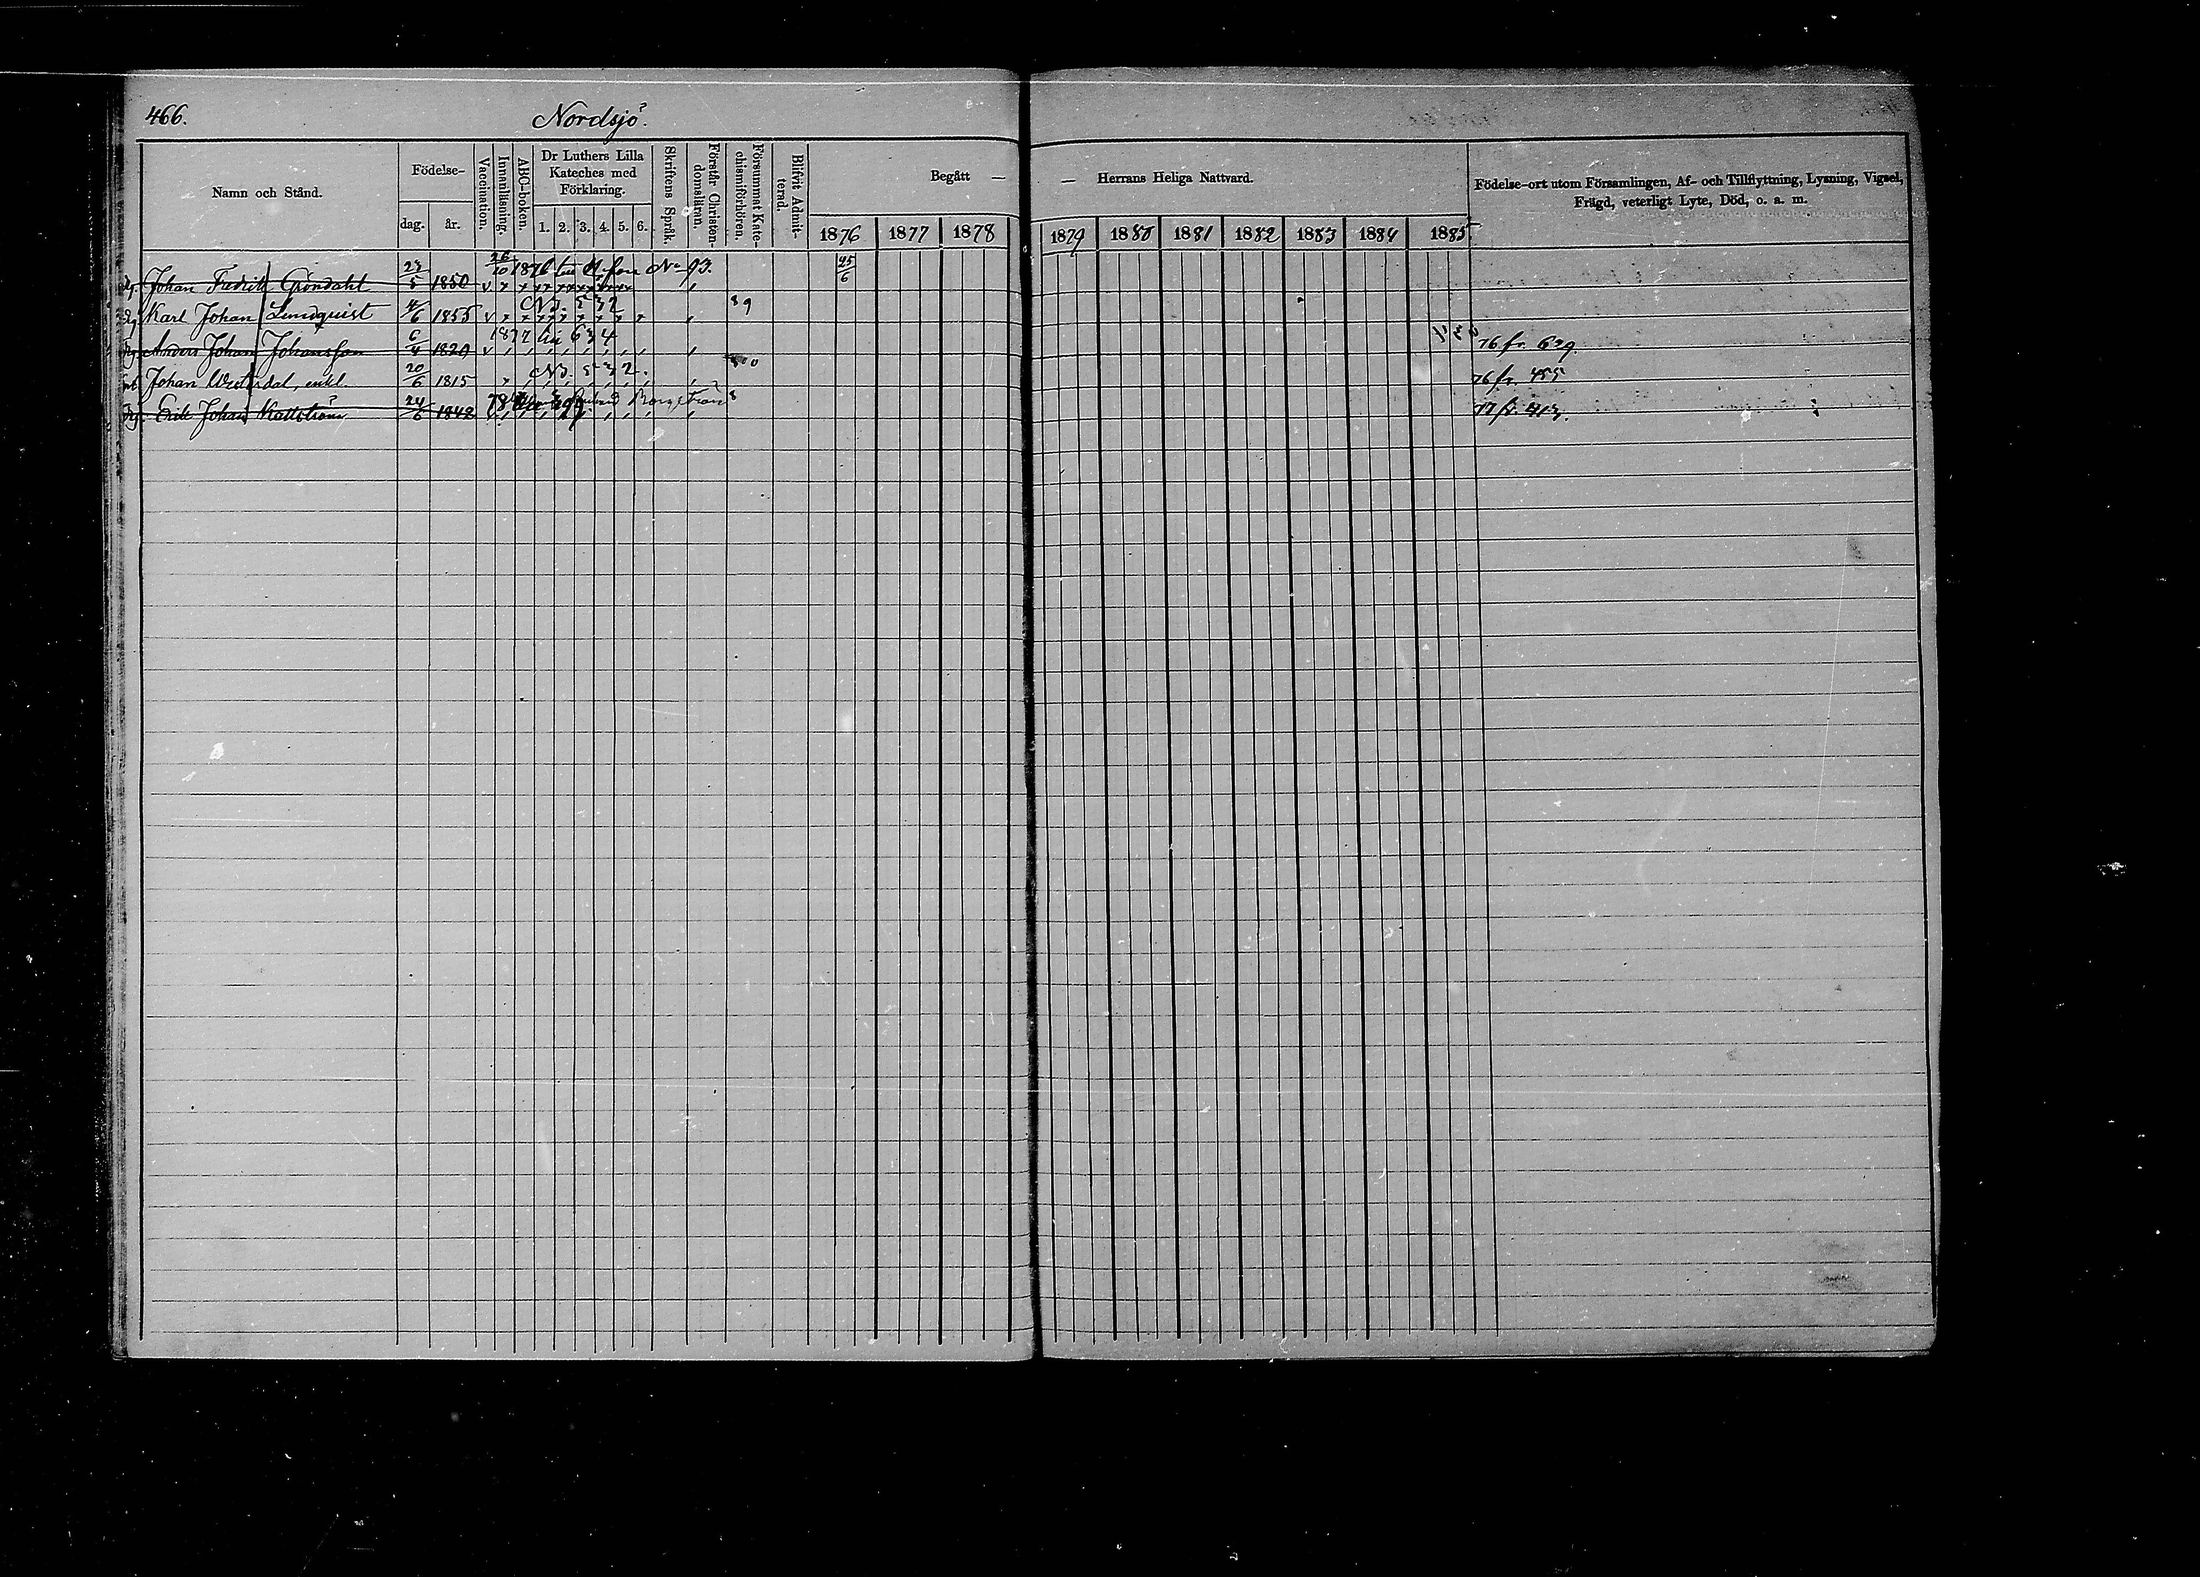 466.
Nordsjö.
Namn och Stånd.
Födelse-
dag.
år.
Vaccination.
Innanläsning.
ABC-boken.
Dr Luthers Lilla
Kateches med
Förklaring.
1. 2. 3. 4. 5. 6.
Skriftens Språk.
Förstår Christen-
domsläran.
Försummat Kate-
chismiförhören.
Blifvit Admit-
terad.
Begått — — Herrans Heliga Nattvard.
1876 1877 1878 1879 1880 1881 1882 1883 1884 1885
Födelse-ort utom Församlingen, Af- och Tillflyttning, Lysning, Vigsel,
Frägd, veterligt Lyte, Död, o. a. m.
Johan Fredrik Gröndahl 23/5 1850 26/10 1876 No 93. 25/6
Karl Johan Lundquist 4/6 1855 N3. 532
Anders Johan Johansson 6/4 1820 1877 634 76 fr. 639.
Johan Westerdal, enkl. 20/6 1815 N3. 532. 76 fr. 455
Erik Johan Kallström 24/6 1842 78 77 fr. 413.